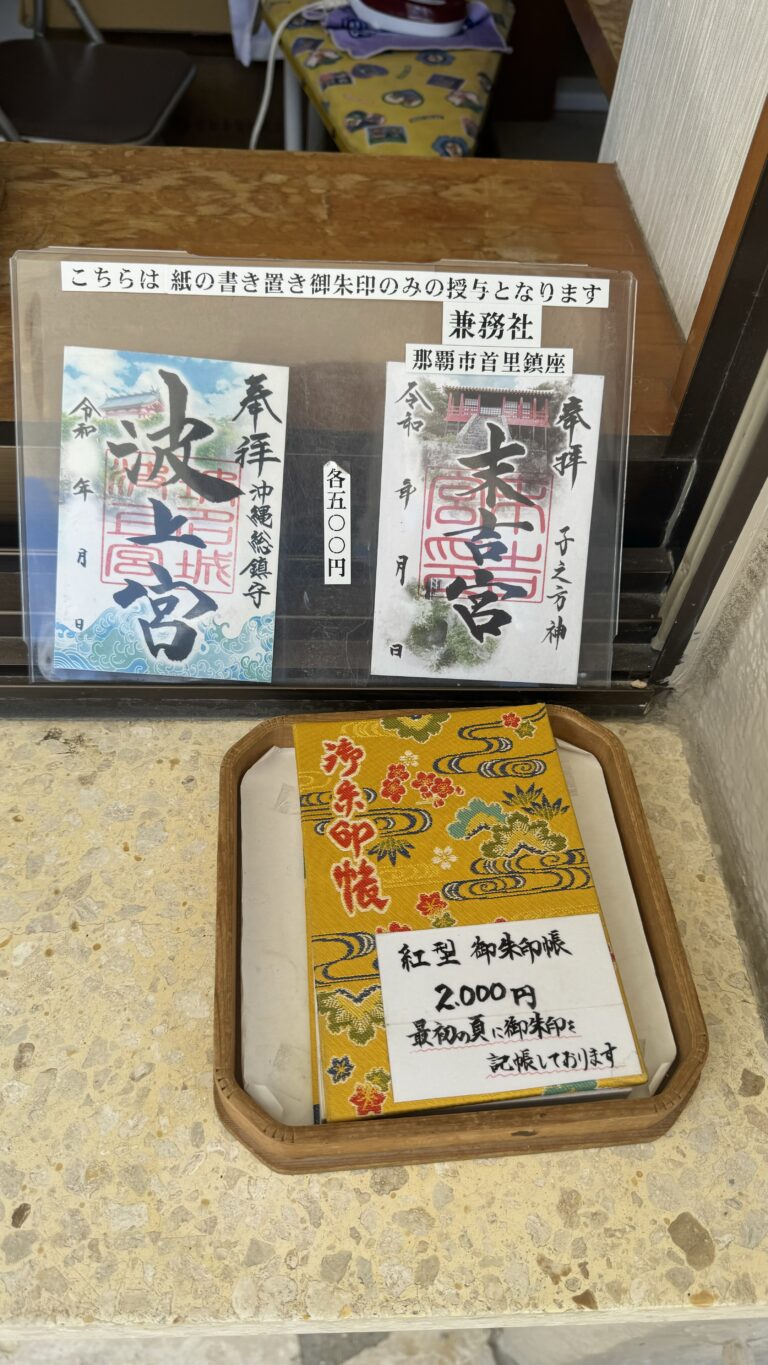 こちらは 紙の書き置き御朱印のみの授与となります
兼務社
那覇市首里鎮座
奉拝
沖縄総鎮守
波上宮
令和 年 月 日
各五〇〇円
奉拝
子之方神
末吉宮
令和 年 月 日
御朱印帳
紅型 御朱印帳
2.000円
最初の頁に御朱印を
記帳しております